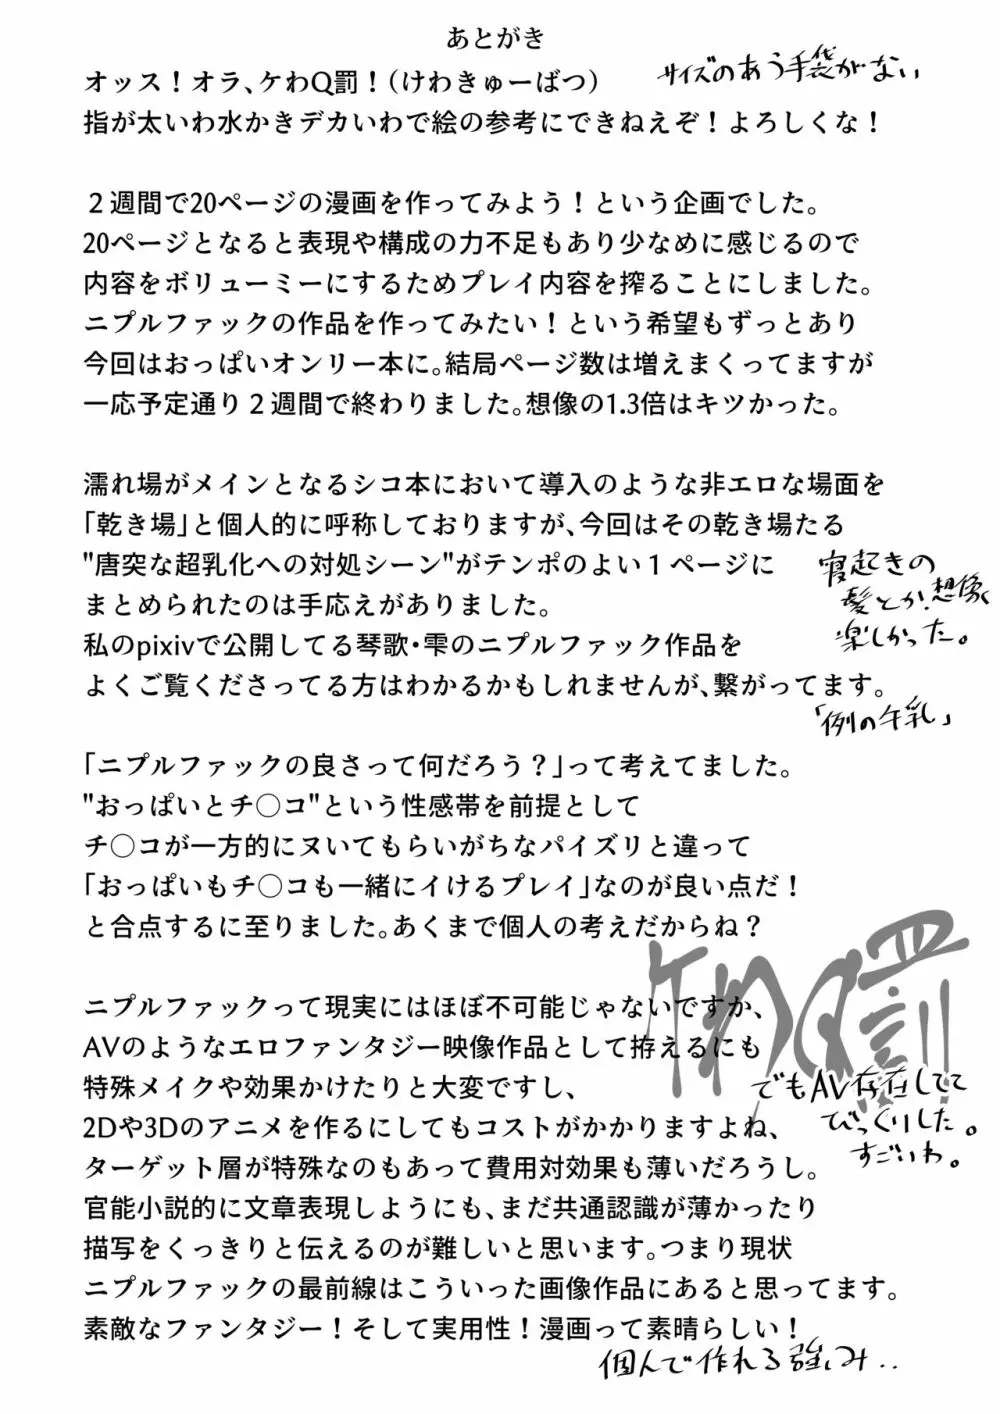 あとがき
オッス！オラ、ケわQ罰！（けわきゅーばつ）
サイズのあう手袋がない
指が太いわ水かきデカいわで絵の参考にできねえぞ！よろしくな！
２週間で20ページの漫画を作ってみよう！という企画でした。
20ページとなると表現や構成の力不足もあり少なめに感じるので
内容をボリューミーにするためプレイ内容を搾ることにしました。
ニプルファックの作品を作ってみたい！という希望もずっとあり
今回はおっぱいオンリー本に。結局ページ数は増えまくってますが
一応予定通り２週間で終わりました。想像の1.3倍はキツかった。
濡れ場がメインとなるシコ本において導入のような非エロな場面を
「乾き場」と個人的に呼称しておりますが、今回はその乾き場たる
"唐突な超乳化への対処シーン"がテンポのよい１ページに
まとめられたのは手応えがありました。
寝起きの
髪とか、想像
楽しかった。
私のpixivで公開してる琴歌・雫のニプルファック作品を
よくご覧くださってる方はわかるかもしれませんが、繋がってます。
「例の牛乳」
「ニプルファックの良さって何だろう？」って考えてました。
"おっぱいとチ〇コ"という性感帯を前提として
チ〇コが一方的にヌいてもらいがちなパイズリと違って
「おっぱいもチ〇コも一緒にイけるプレイ」なのが良い点だ！
と合点するに至りました。あくまで個人の考えだからね？
ケわQ罰!!
ニプルファックって現実にはほぼ不可能じゃないですか、
AVのようなエロファンタジー映像作品として拵えるにも
特殊メイクや効果かけたりと大変ですし、
でもAV存在してて
びっくりした。
すごいわ。
2Dや3Dのアニメを作るにしてもコストがかかりますよね、
ターゲット層が特殊なのもあって費用対効果も薄いだろうし。
官能小説的に文章表現しようにも、まだ共通認識が薄かったり
描写をくっきりと伝えるのが難しいと思います。つまり現状
ニプルファックの最前線はこういった画像作品にあると思ってます。
素敵なファンタジー！そして実用性！漫画って素晴らしい！
個人で作れる強み..